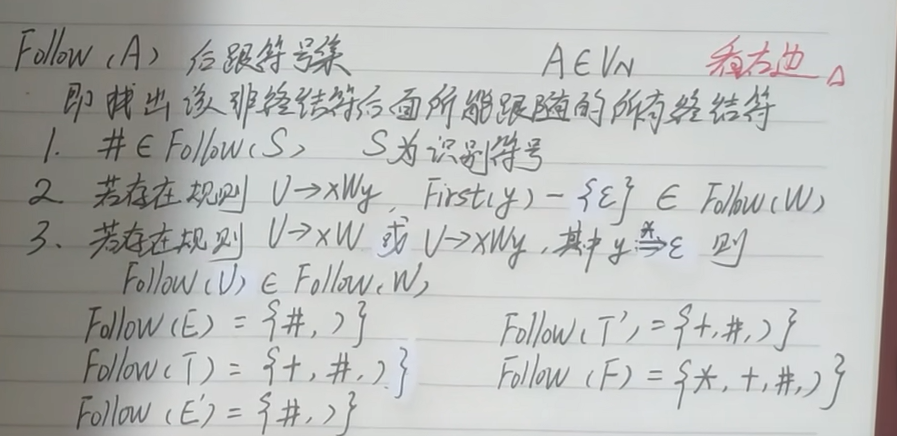 Follow(A) 后跟符号集 A∈VN 看右边 △
即找出该非终结符后面所能跟随的所有终结符
1. #∈Follow(S) S为识别符号
2. 若存在规则 U→xWy, First(y)-{ε} ∈ Follow(W)
3、若存在规则 U→xW 或 U→xWy,其中y*⇒ε 则
Follow(U) ∈ Follow(W)
Follow(E) = {#, )} Follow(T') = {+,#,)}
Follow(T) = {+, #, )} Follow(F) = {*, +,#,)}
Follow(E') = {#,)}